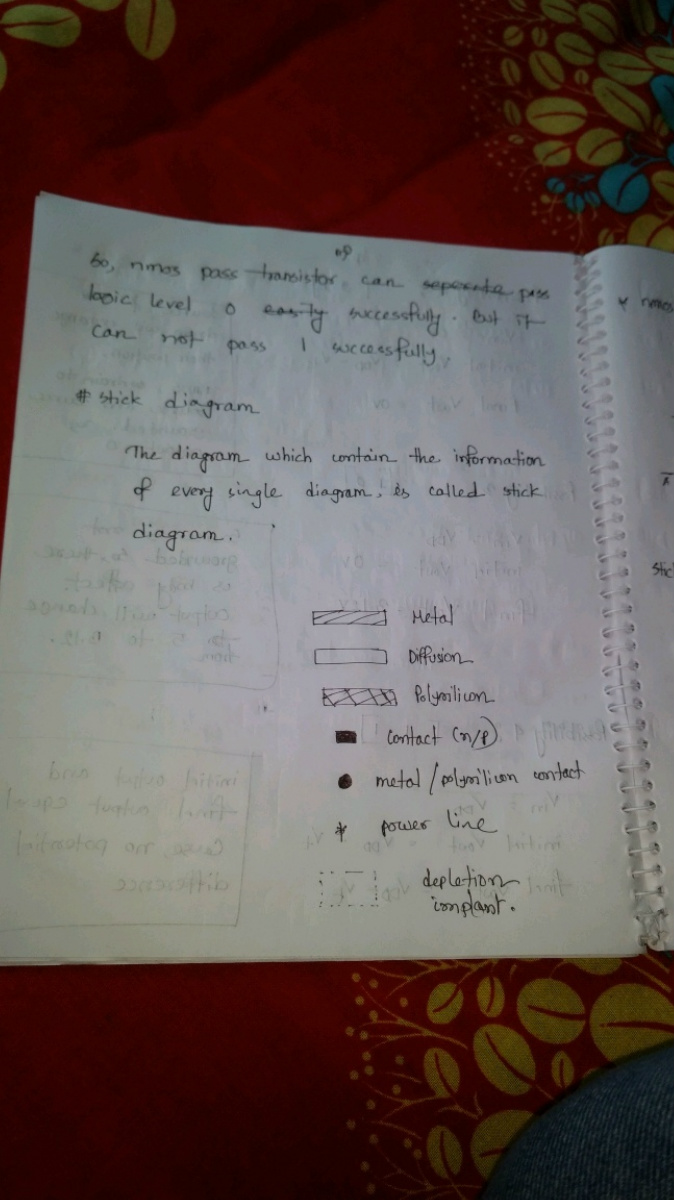 So, nmos pass transistor can seperate pass
logic level 0 easily successfully. But it
can not pass 1 successfully
# stick diagram
The diagram which contain the information
of every single diagram, is called stick
diagram.
Metal
Diffusion
Polysilicon
contact (n/p)
metal/polysilicon contact
* power line
depletion
implant.
* nmos
stic